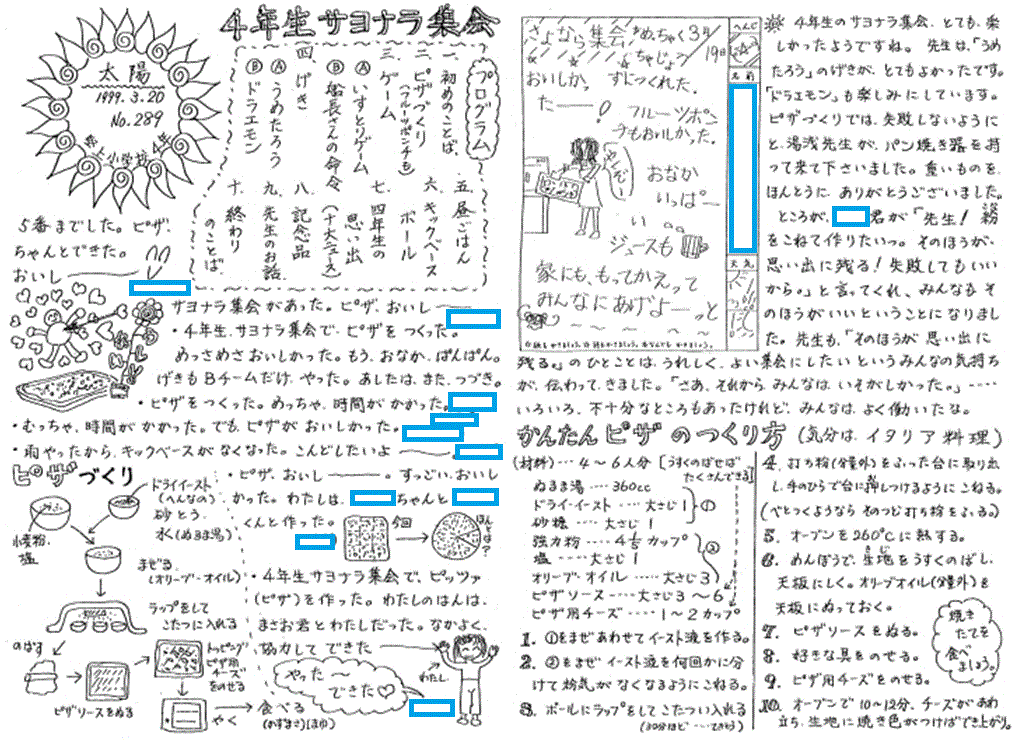 4年生サヨナラ集会
太陽
1999.3.20
No.289
プログラム
一、初めのことば
二、ピザづくり
(フルーツポンチも)
三、ゲーム
Ⓐいすとりゲーム
Ⓑ船長さんの命令
四、げき
Ⓐうめたろう
Ⓑドラエモン
五、昼ごはん
六、キックベースボール
七、四年生の思い出
(十大ニュース)
八、記念品
九、先生のお話
十、終わりのことば
5番までした。ピザ
ちゃんとできた。
おいし
サヨナラ集会があった。ピザ、おいし
・4年生サヨナラ集会で、ピザをつくった。
めっさめさおいしかった。もう、おなか、ぱんぱん。
げきもBチームだけ、やった。あしたは、また、つづき。
・ピザをつくった。めっちゃ、時間がかかった。
・むっちゃ、時間がかかった。でも ピザがおいしかった。
・雨やったから、キックベースがなくなった。こんどしたいよ
ピザづくり
ドライイースト
(へんなの)
砂とう
水(ぬるま湯)
塩
まぜる
(オリーブ・オイル)
ラップをして
こたつに入れる
のばす
ピザソースをぬる
トッピング
ピザ用
チーズ
をのせる
やく
食べる
・ピザ、おいし すっごい、おいし
かった。わたしは、 ちゃんと
くんと作った。
今回
ほんとは?
・4年生サヨナラ集会で、ピッツァ
(ピザ)を作った。わたしのはんは、
まさお君とわたしだった。なかよく、
協力して できた
やった〜
できた♡
わたし
さよなら集会 めちゃくちゃじょうずにつくれた。
3月19日
おいしかった――!
フルーツポンチもおいしかった。
おなか
いっぱ―
い。。
ジュースも
家にも、もってかえって
みんなにあげよ――っと
名前
天気
4年生のサヨナラ集会、とても、楽
しかったようですね。先生は、「うめ
たろう」のげきが、とてもよかったです。
「ドラエモン」も楽しみにしています。
ピザづくりでは、失敗しないように
と、湯浅先生が、パン焼き器を持
って来て下さいました。重いものを、
ほんとうに、ありがとうございました。
ところが、 君が「先生! 粉
をこねて作りたいっ。そのほうが、
思い出に残る!失敗してもいい
から。」と言ってくれ、みんなもそ
のほうがいいということになりまし
た。先生も、「そのほうが思い出に
残る。」のひとことは、うれしく、よい集会にしたいというみんなの気持ち
が、伝わってきました。「さあ、それからみんなは、いそがしかった。」‥‥
いろいろ、不十分なところもあったけれど、みんなは、よく働いたな。
かんたんピザのつくり方(気分は、イタリア料理)
(材料)‥‥4〜6人分[うすくのばせばたくさんできる]
ぬるま湯‥‥360cc
ドライ・イースト‥‥大さじ1
砂糖‥‥大さじ1
①
強力粉‥‥4 1/5カップ
塩‥‥大さじ1
オリーブ・オイル‥‥大さじ3
②
ピザソース‥‥大さじ3〜6
ピザ用チーズ‥‥1〜2カップ
1. ①をまぜあわせてイースト液を作る。
2. ②をまぜ イースト液を何回かに分
けて粉気がなくなるようにこねる。
3. ボールにラップをしてこたつに入れる
(30分ほど‥‥できあがり)
4. 打ち粉(分量外)をふった台に取り出
し、手のひらで台に押しつけるようにこねる。
(べとつくようなら そのつど打ち粉をふる。)
5. オーブンを260℃に熱する。
6. めんぼうで、生地をうすくのばし、
天板にしく。オリーブオイル(分量外)を
天板にぬっておく。
7. ピザソースをぬる。
8. 好きな具をのせる。
9. ピザ用チーズをのせる。
10. オーブンで10〜12分、チーズがあわ
立ち、生地に焼き色がつけばでき上がり。
焼き
たてを
食べ
ましょう。